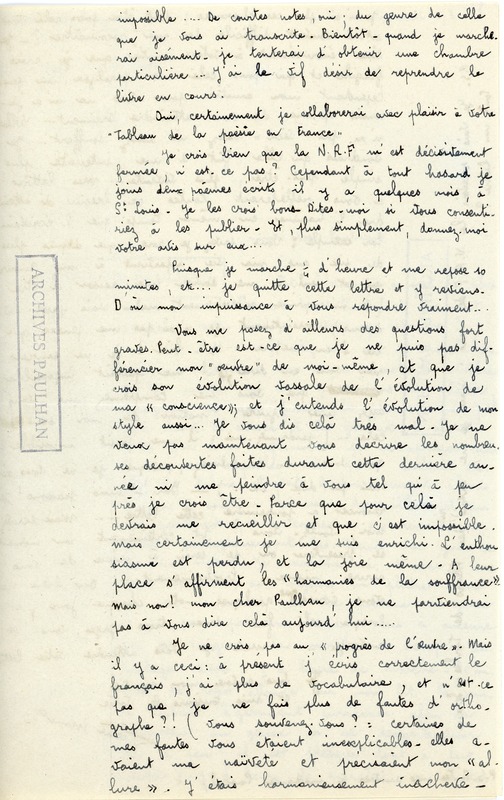 impossible .... De courtes notes, oui, du genre de celle
que je vous ai transcrite. Bientôt - quand je marche-
rai aisément - je tenterai d'obtenir une chambre
particulière ... J'ai le vif désir de reprendre le
livre en cours.
Oui, certainement je collaborerai avec plaisir à votre
"Tableau de la poésie en France".
Je crois bien que la N.R.F. m'est décisivement
fermée, n'est-ce pas? Cependant à tout hasard je
joins deux poèmes écrits il y a quelques mois, à
St Louis - Je les crois bons. Dites-moi si vous consenti-
riez à les publier - Et, plus simplement, donnez-moi
votre avis sur eux...
Puisque je marche ½ d'heure et me repose 10
minutes, etc... je quitte cette lettre et y reviens.
D'où mon impuissance à vous répondre vraiment...
Vous me posez d'ailleurs des questions fort
graves. Peut-être est-ce que je ne puis pas dif-
férencier mon "œuvre" de moi-même, et que je
crois son évolution vassale de l'évolution de
ma « conscience »; et j'entends l'évolution de mon
style aussi... Je vous dis celà très mal - Je ne
veux pas maintenant vous décrire les nombreu-
ses découvertes faites durant cette dernière an-
née ni me peindre à vous tel qu'à peu
près je crois être - Parce que pour celà je
devrais me recueillir et que c'est impossible.
Mais certainement je me suis enrichi. L'enthou
siasme est perdu, et la joie même - A leur
place s'affirment les « harmonies de la souffrance »
Mais non! mon cher Paulhan, je ne parviendrai
pas à vous dire celà aujourd'hui .....
Je ne crois pas au « progrès de l'Œuvre ». Mais
il y a ceci: à présent j'écris correctement le
français, j'ai plus de vocabulaire, et n'est-ce
pas que je ne fais plus de fautes d'ortho-
graphe?! (Vous souvenez-vous?: certaines de
mes fautes vous étaient inexplicables - elles a-
vaient une naïveté et précisaient mon « al-
lure ». J'étais harmonieusement inachevé -
ARCHIVES PAULHAN